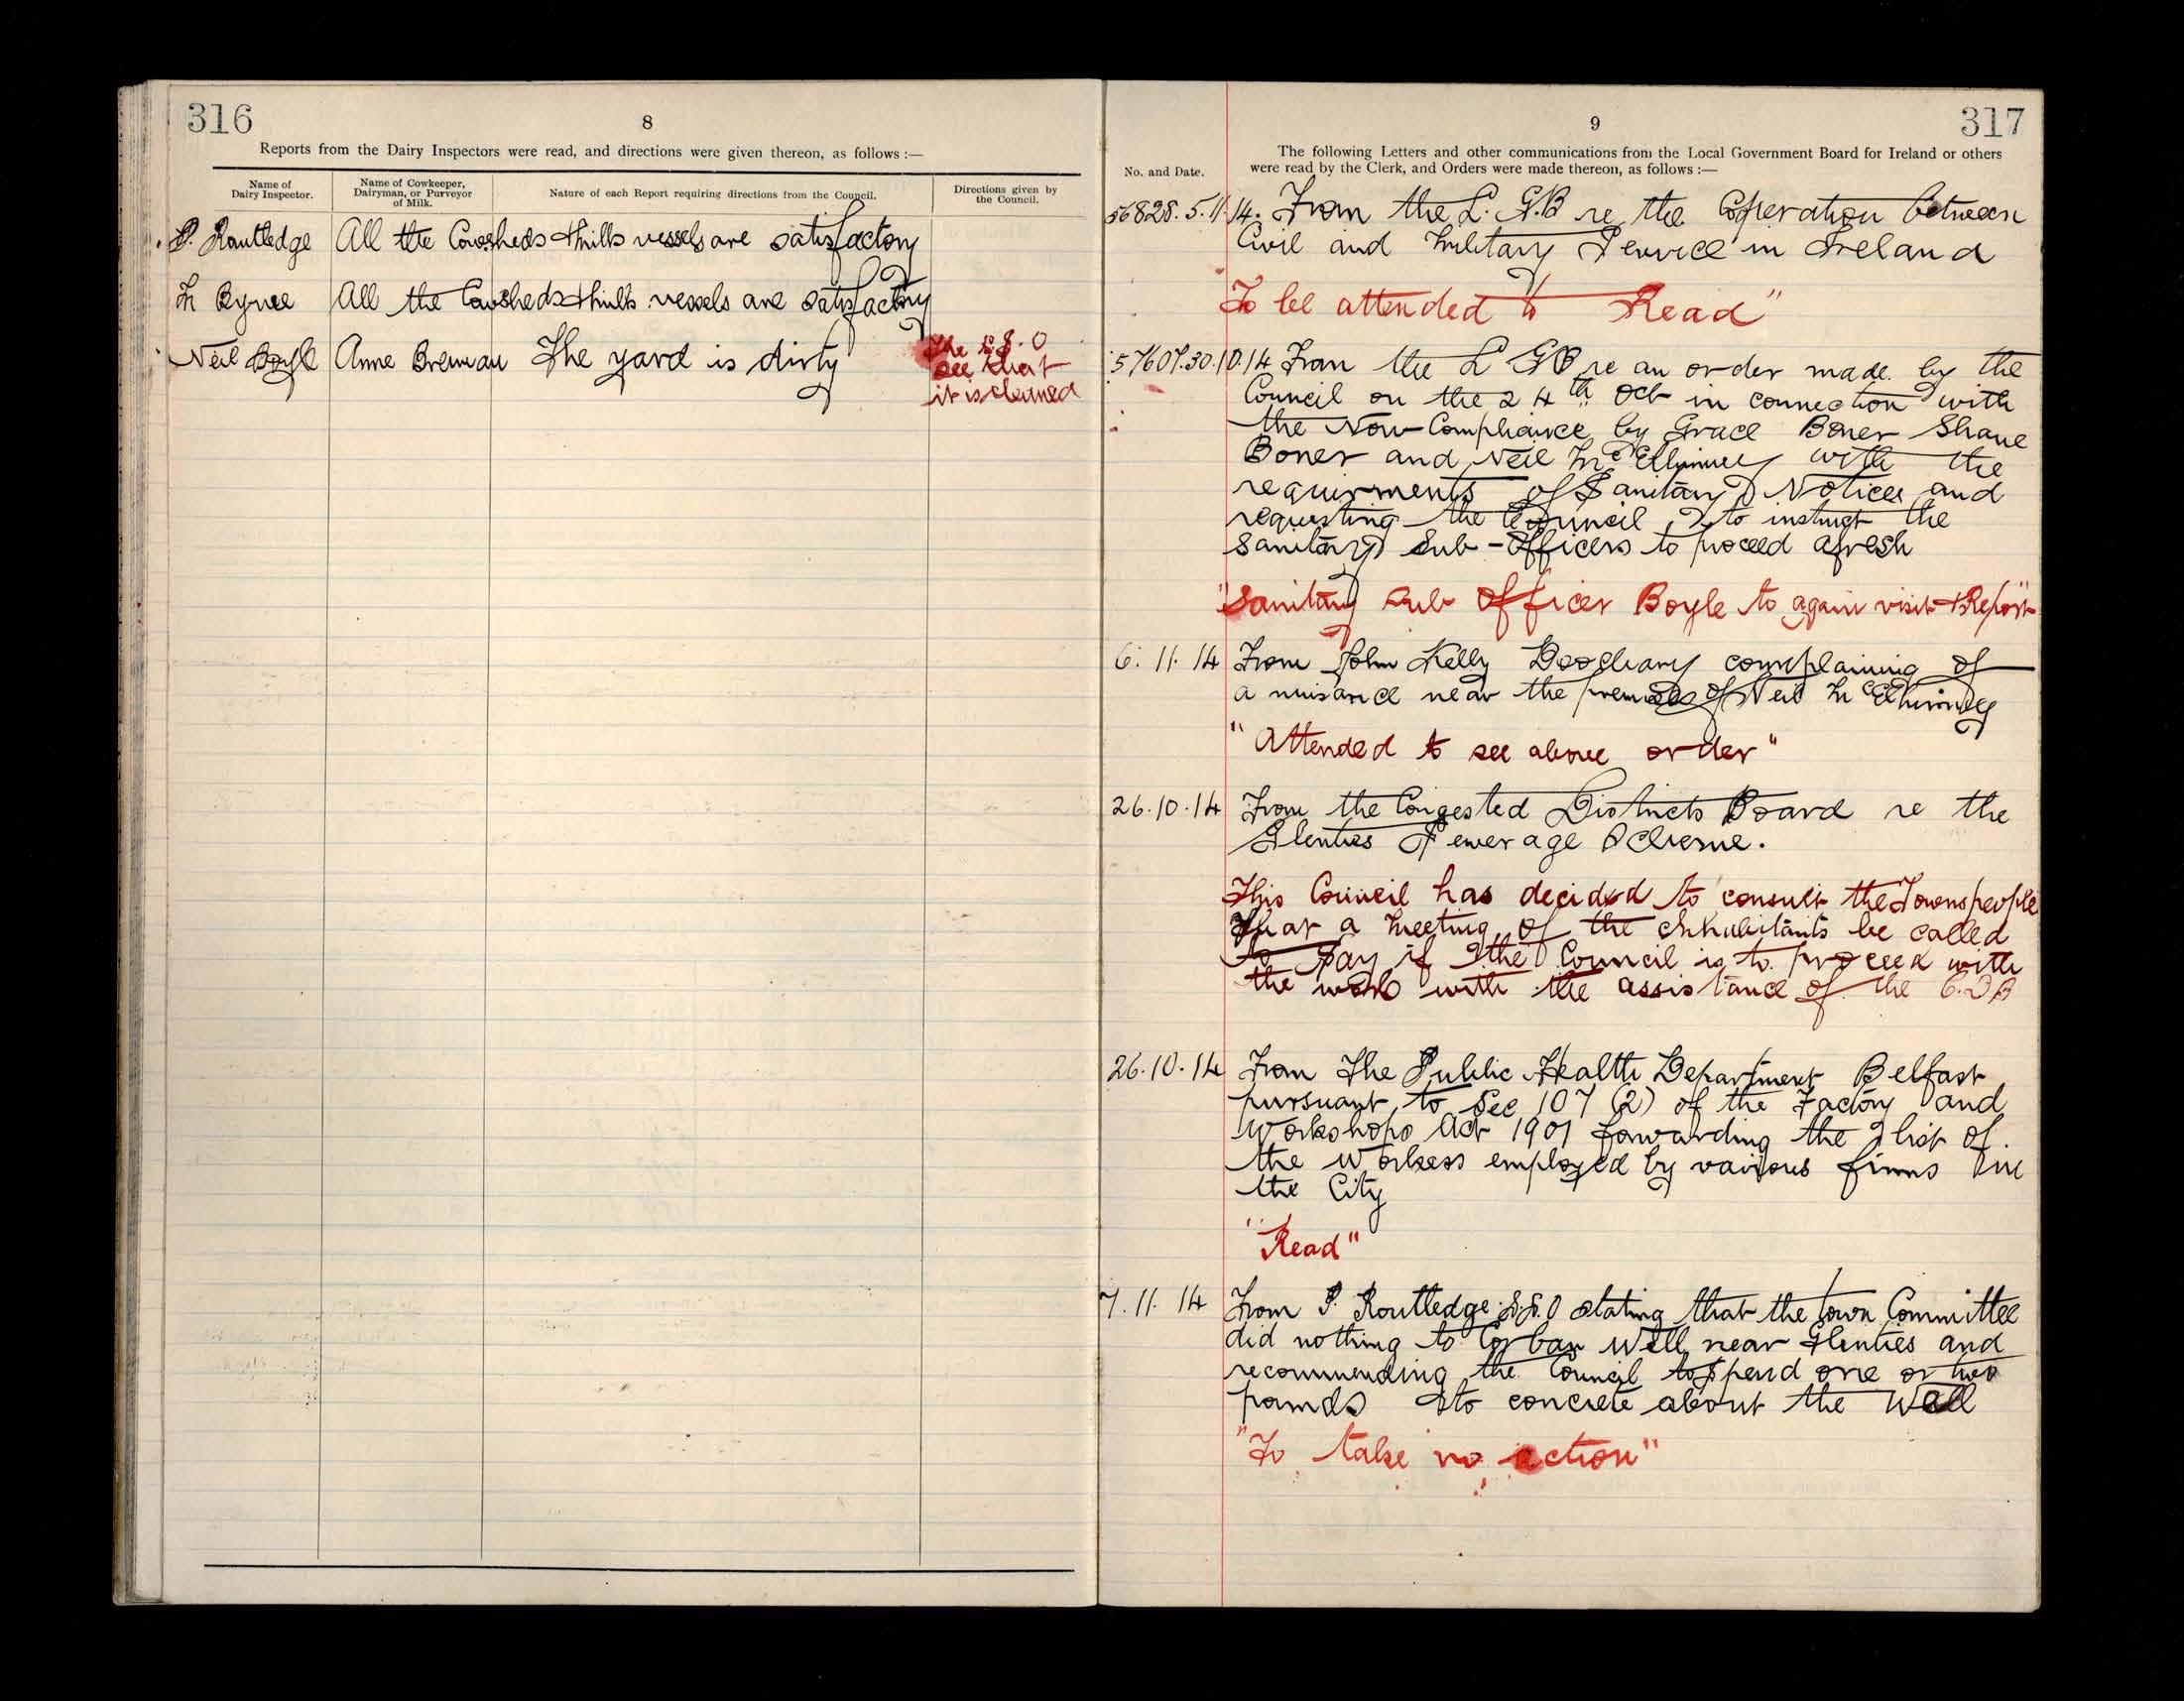 316
8
Reports from the Dairy Inspectors were read, and directions were given thereon, as follows :—
Name of Dairy Inspector.
Name of Cowkeeper, Dairyman, or Purveyor of Milk.
Nature of each Report requiring directions from the Council.
Directions given by the Council.
P. Routledge All the Cowsheds & milk vessels are satisfactory
M Byrne All the Cowsheds & milk vessels are satisfactory
Neil Boyle Anne Brennan The yard is dirty
The S.S.O
see that
it is cleaned
317
9
The following Letters and other communications from the Local Government Board for Ireland or others
were read by the Clerk, and Orders were made thereon, as follows :—
No. and Date.
56828. 5.11.14. From the L.G.B re the Coperation between
Civil and Military Service in Ireland
To be attended to Read"
57607.30.10.14 From the L GB re an order made by the
Council on the 24th Oct in connection with
the Non-Compliance by Grace Boner Shane
Boner and Neil McElhinney with the
requirments of Sanitary Notices and
requesting the Council to instruct the
Sanitary Sub-Officers to proceed afresh
"Sanitary Sub Officer Boyle to again visit & Report"
6. 11. 14 From John Kelly complaining of
a nuisance near the premises of Neil McElhinney
"Attended to see above order"
26.10.14 From the Congested Districts Board re the
Glenties Sewerage Scheme.
This Council has decided to consult the Townspeople
That a meeting of the Inhabitants be called
to say if the Council is to proceed with
the work with the assistance of the C.D.B
26.10.14 From The Public Health Department Belfast
pursuant to Sec 107 (2) of the Factory and
Workshops Act 1901 forwarding the list of
the workers employed by various firms in
the City
"Read"
7.11.14 From P. Routledge S.S.O stating that the town Committee
did nothing to Well near Glenties and
recommending the Council to spend one or two
pounds to concrete about the Well
"To take no action"